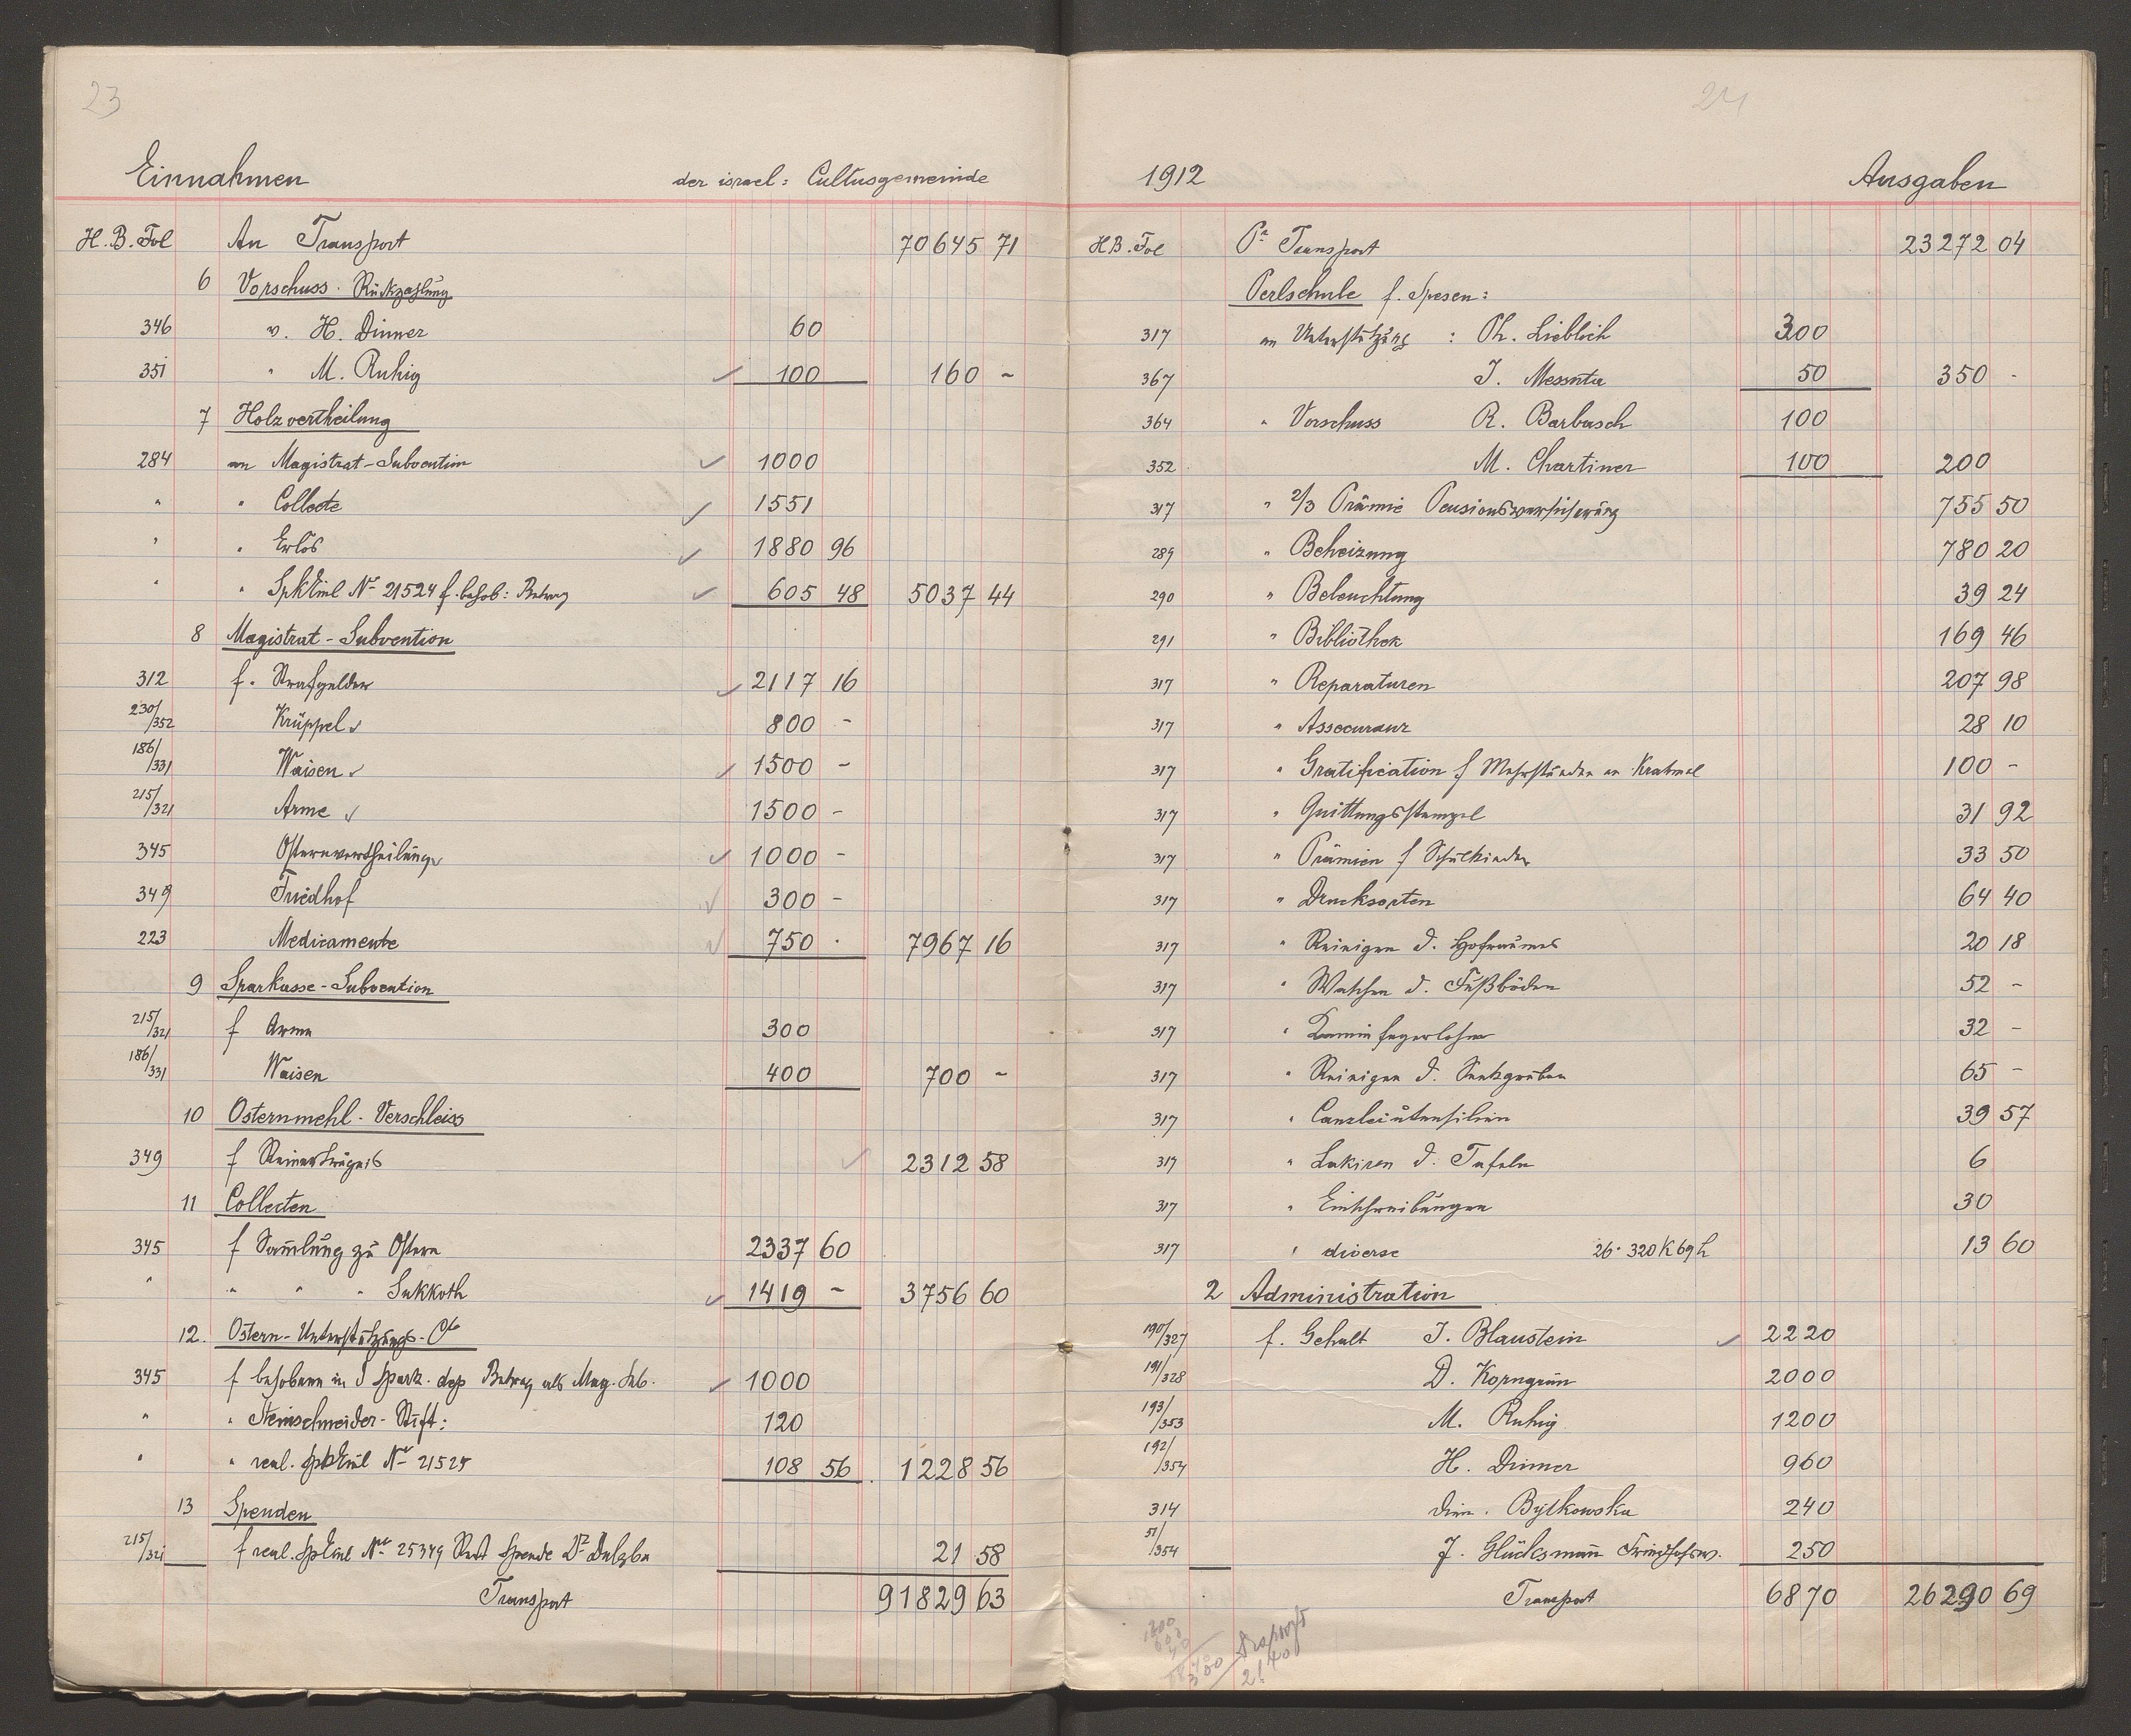 23
Einnahmen der israel: Cultusgemeinde
H. B. Fol An Transport 70645 71
6 Vorschuss-Rückzahlung
346 v. H. Dinner 60
351 " M. Ruhig 100 160 -
7 Holzvertheilung
284 an Magistrat-Subvention 1000
" " Collecte 1551
" " Erlös 1880 96
" " SpkEinl Nr 21524 f. behob: Betrag 605 48 5037 44
8 Magistrat-Subvention
312 f. Strafgelder 2117 16
230/352 Krüppel 800 -
186/331 Waisen 1500 -
215/321 Arme 1500 -
345 Osternvertheilung 1000 -
349 Friedhof 300 -
223 Medicamente 750 - 7967 16
9 Sparkasse-Subvention
215/321 f Arme 300
186/331 Waisen 400 700 -
10 Osternmehl-Verschleiss
349 f Reinerträgnis 2312 58
11 Collecten
345 f Sammlung zu Ostern 2337 60
" " " " Sukkoth 1419 - 3756 60
12. Ostern-Unterstützungs-Cto
345 f behobenen in d Spark. dep Betrag als Mag. Sub. 1000
" " Steinschneider-Stift: 120
" " real. SpkEinl Nr 21525 108 56 1228 56
13 Spenden
215/321 f real. SpEinl Nr 25349 Rest Spende Dr 21 58
Transport 91829 63
24
1912 Ausgaben
HB. Fol Pr Transport 23272 04
Perlschule f. Spesen:
317 an Unterstützung : Ph. Lieblich 300
367 J. Messuta 50 350 -
364 " Vorschuss R. Barbasch 100
352 M. Chartiner 100 200
317 " 2/3 Prämie Pensionsversicherung 755 50
289 " Beheizung 780 20
290 " Beleuchtung 39 24
291 " Bibliothek 169 46
317 " Reparaturen 207 98
317 " Assecuranz 28 10
317 " Gratification f Mehrstunden an Kratmal 100 -
317 " Quittungsstempel 31 92
317 " Prämien f Schulkinder 33 50
317 " Drucksorten 64 40
317 " Reinigen d. Hofraumes 20 18
317 " Waschen d. Fußböden 52 -
317 " Kaminfegerlohn 32 -
317 " Reinigen d. Senkgruben 65 -
317 " Canzleiutensilien 39 57
317 " Lakiren d. Tafeln 6
317 " Einschreibungen 30
317 " diverse 26·320K69h 13 60
2 Administration
190/327 f. Gehalt J. Blaustein 2220
191/328 D. Korngrün 2000
193/353 M. Ruhig 1200
192/354 H. Dinner 960
314 Bytkowska 240
51/354 J. Glücksmann 250
Transport 6870 26290 69